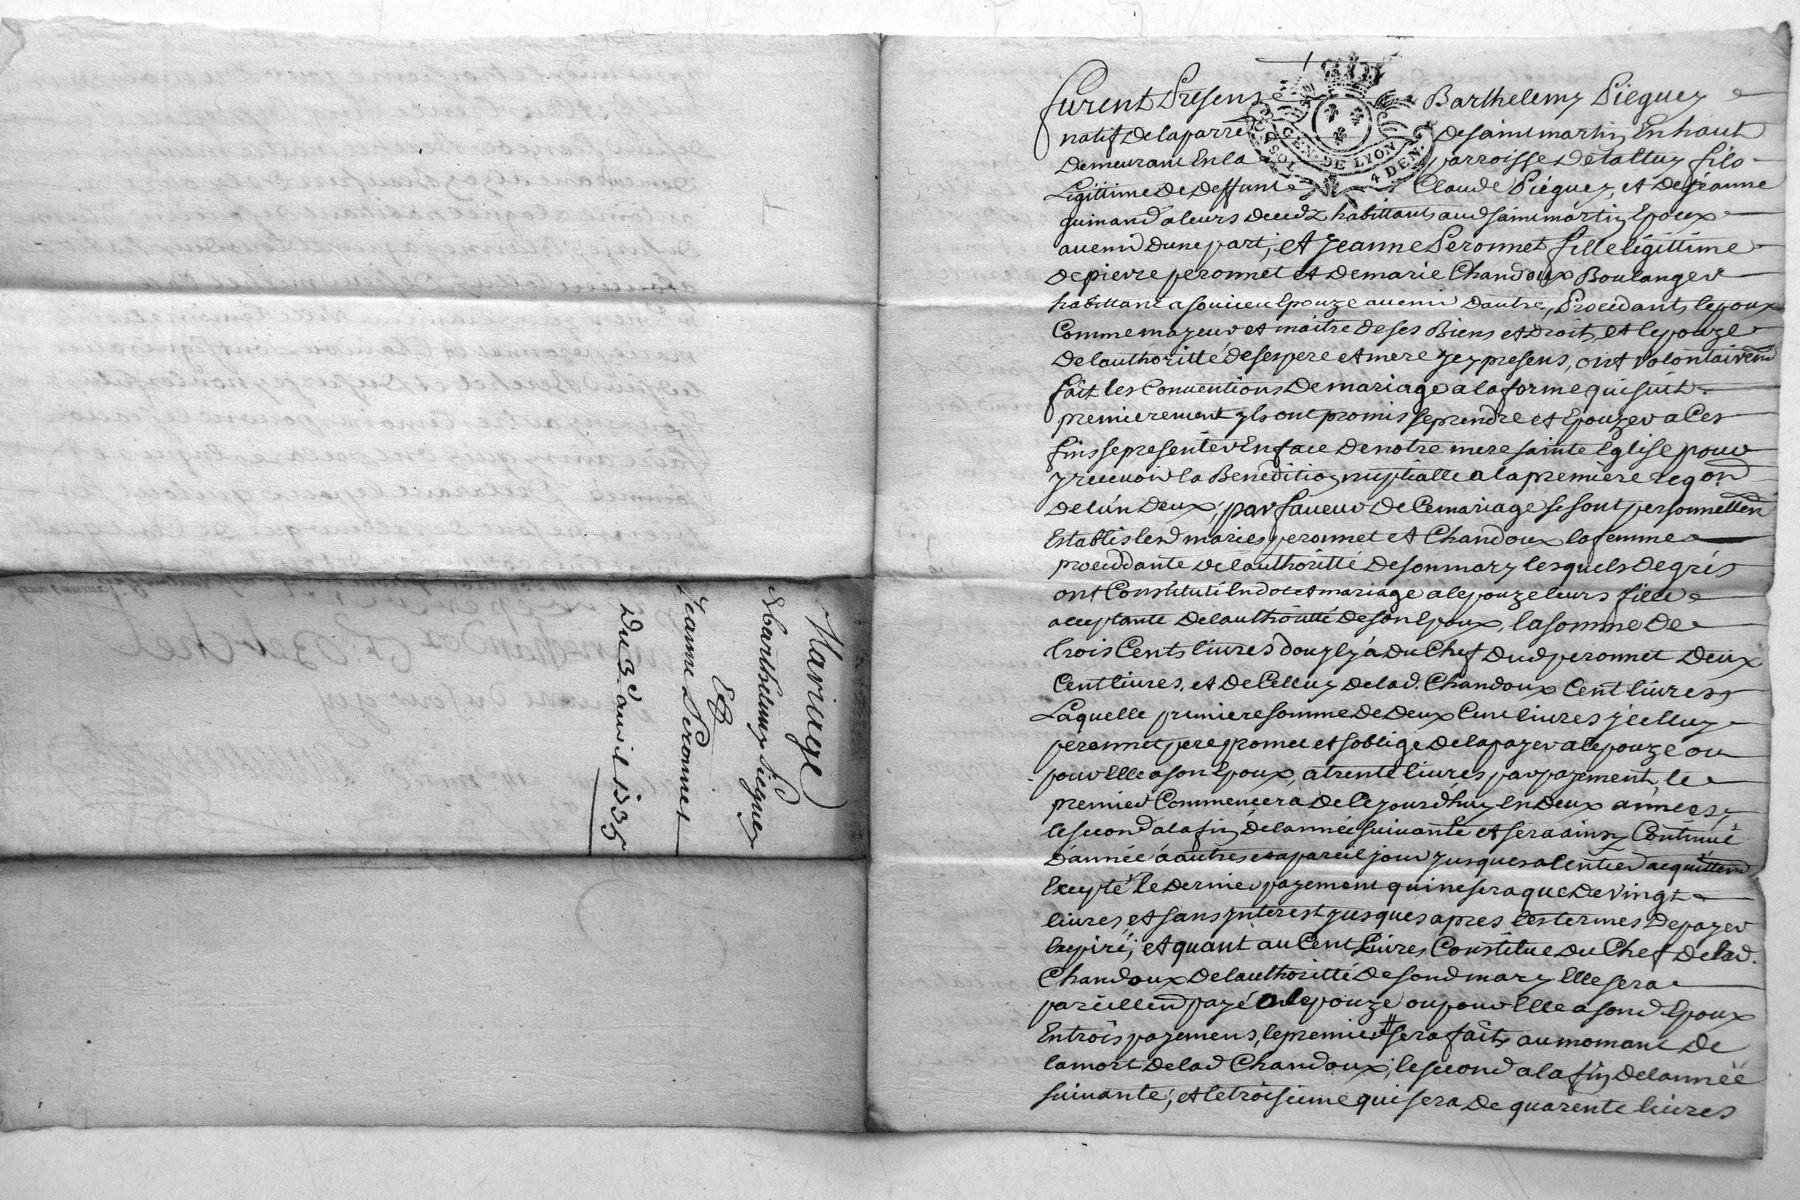 Mariage
Barthelemy Pieguey
Et
Jeanne Peronnet
Du 3e avril 1735
GEN. DE LYON
SOL 4 DEN.
furent Presens Barthelemy Pieguey
natif De la parr. De saint martin En haut
Demeurant En la parroisse De taluy fils
Legittime De Deffunt Claude Piéguey, et De jeanne
guinand a leurs deced habittants aud saint martin Epoux
avenir Dune part, et Jeanne Peronnet fille légittime
De pierre peronnet et De marie Chandoux Boulanger
habittant a soucieu Epouze avenir Dautre, Procedants lepoux
Comme mayeur et maitre De ses Biens et Droits, et lepouze
De lauthoritté de ses pere et mere jcy presens, ont volontairem
fait les Conventions De mariage a la forme qui suit
premierement yls ont promis se prendre et Epouzer a Ces
fins se presenter En face De notre mere sainte Eglise pour
y recevoir la Benediction nuptialle a la premiere reqon
De lun Deux, par faveur De Ce mariage se sont personnellem
Establis led maries peronnet et Chandoux la femme
proceddante de lauthoritté De son mary lesquels De gré
ont Constitué En dot et mariage a lepouze leurs fille
acceptante De lauthoritté De son Epoux, la somme De
trois Cents livres Dont il y á Du Chef Dud peronnet Deux
Cent livres, et De Celluy De lad. Chandoux Cent livres,
Laquelle premiere somme De Deux Cent livres jcelluy
peronnet pere promet et soblige De la payer a lepouze ou
pour Elle a son Epoux, a trente livres par payement, le
premier Commencera De Ce jourdhuy En Deux années,
le second a la fin De lannée suivante et sera ainsy Continué
Dannée á autres et a pareil jour jusques a lentier acquittem
Excepté le Dernier payement qui ne sera que De vingt
livres, et sans jnterest jusques apres les termes De payer
Expiré; et quant au Cent livres Constitue Du Chef De lad.
Chandoux De lauthoritté De sond mary Elle sera
pareillem payé a lepouze ou pour Elle a sond Epoux
En trois payemens, le premier sera fait au momant De
la mort De lad Chandoux, le second a la fin De lannéé
suivante, et le troisieme qui sera De quarente livres